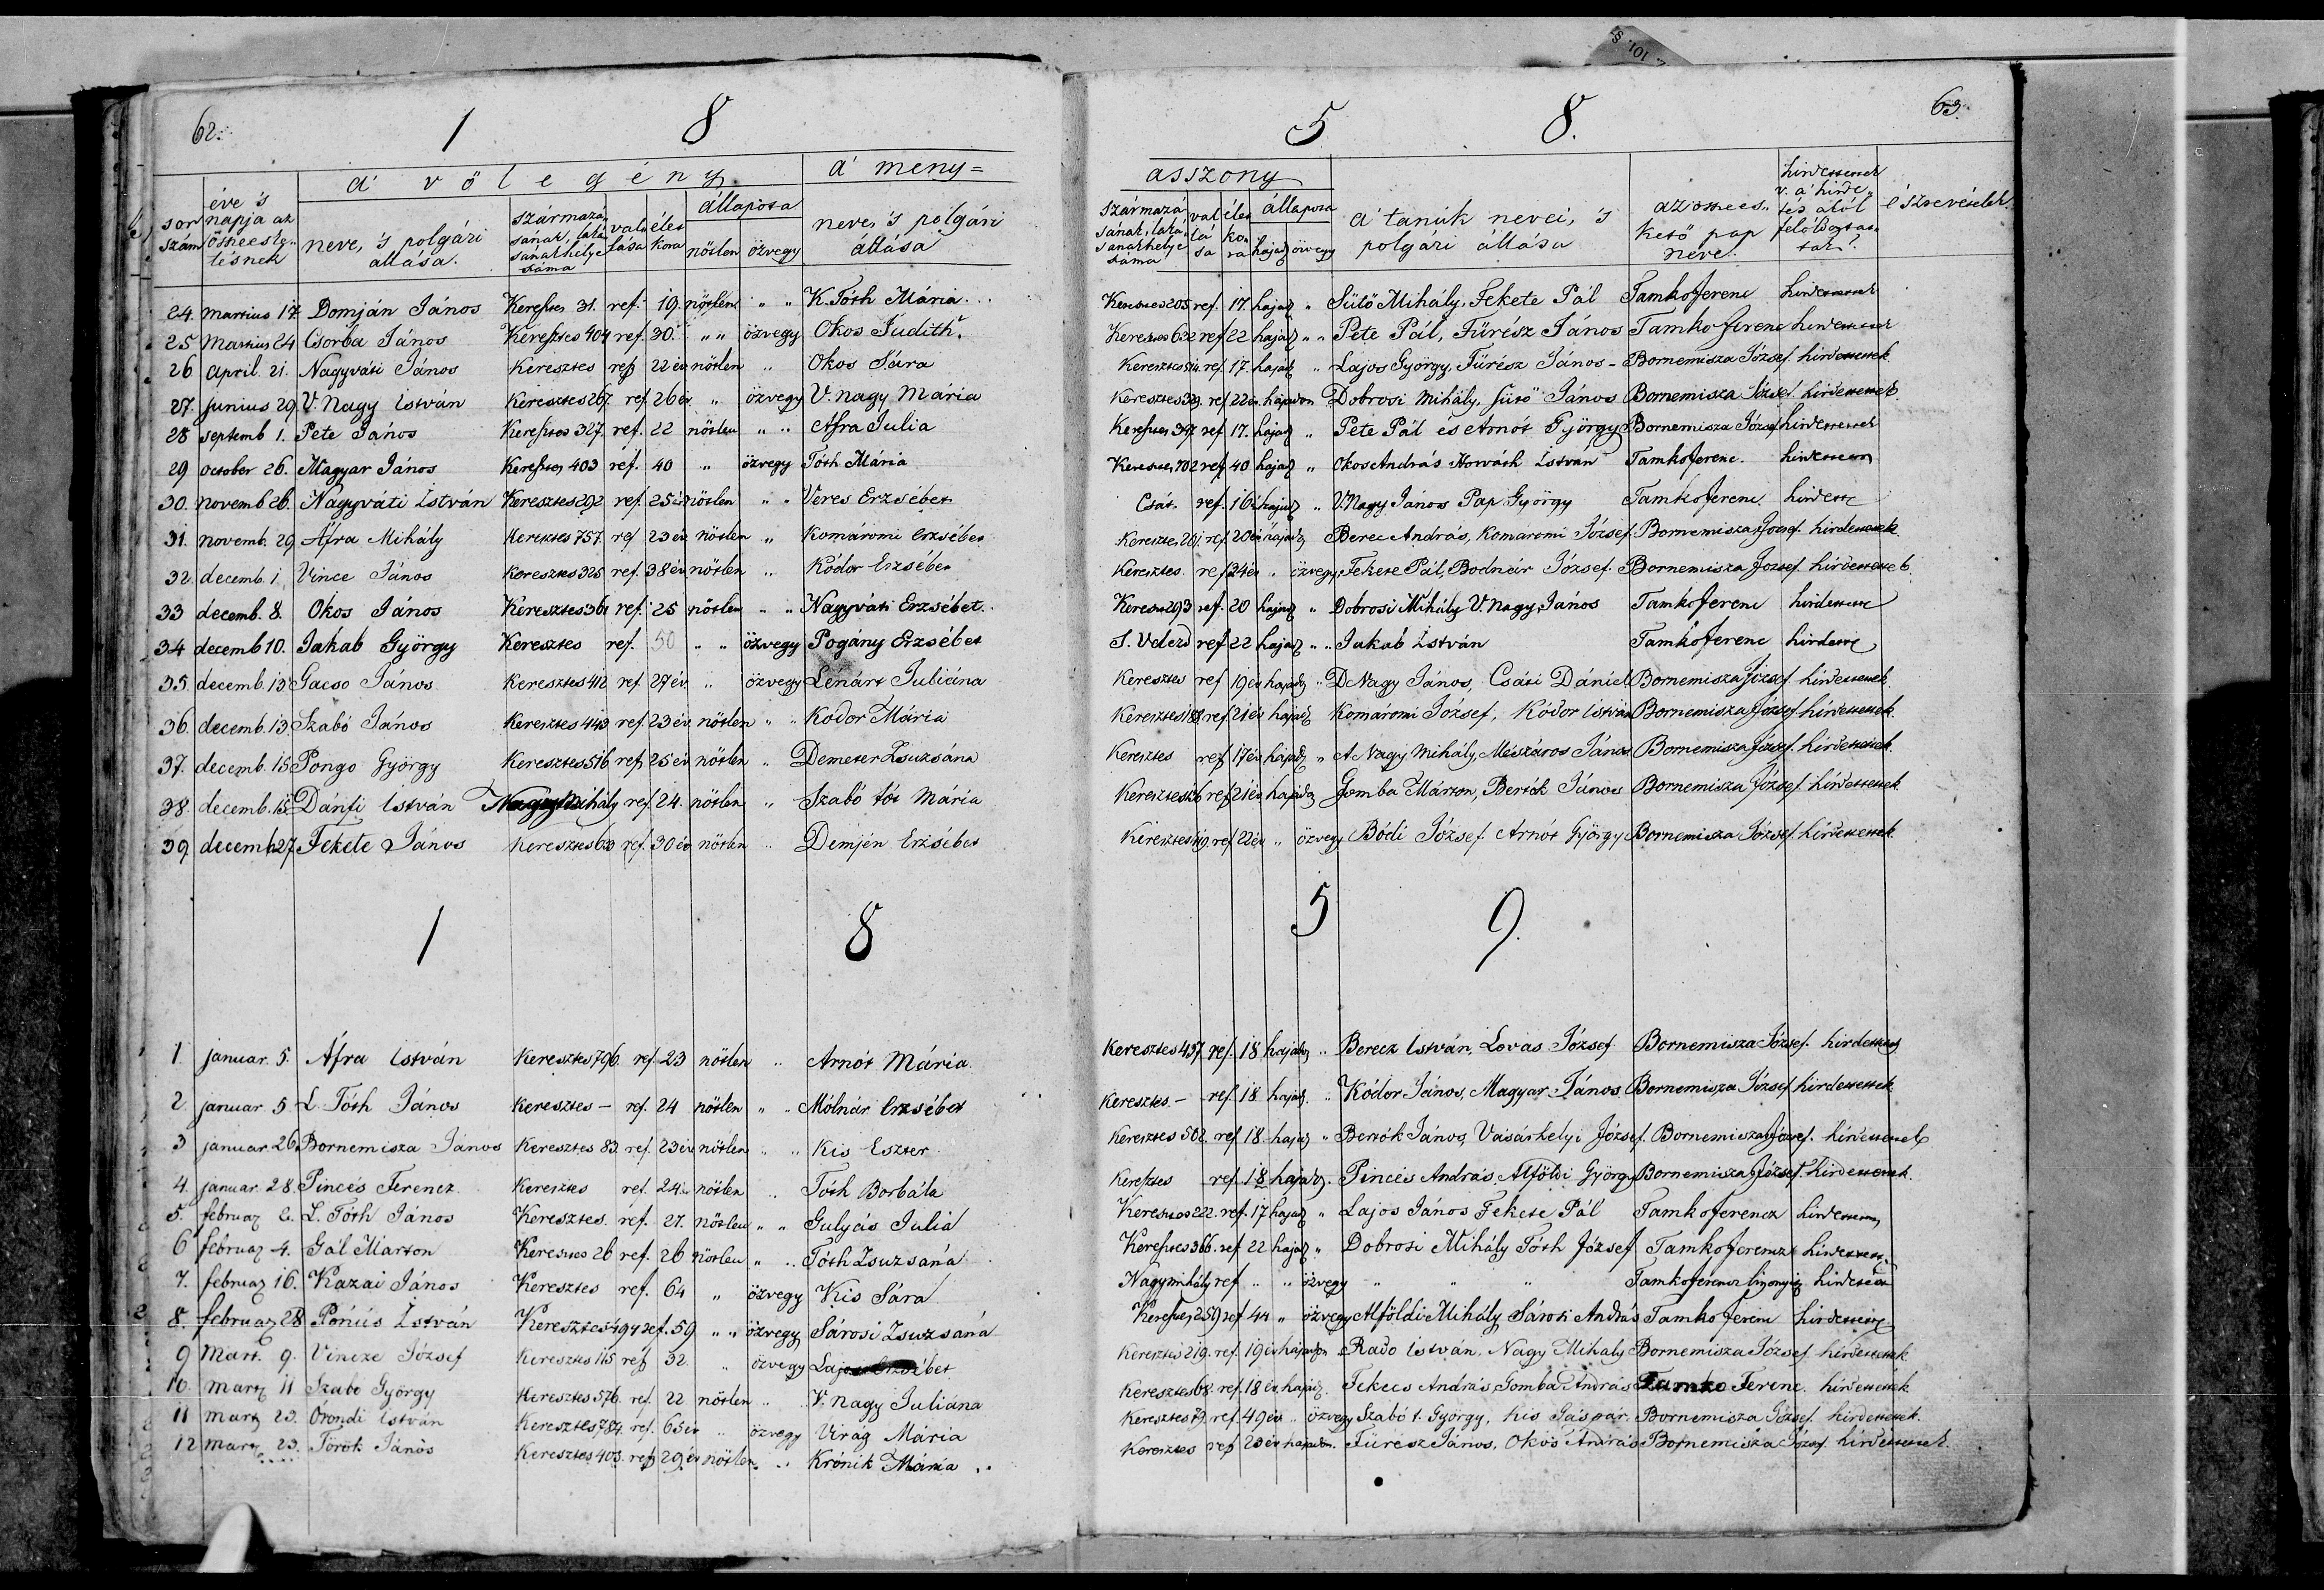 62.
1 8
5 8.
63.
a' vőlegény
a' meny=
asszony
sor szám
éve 's napja az össeeske- tésnek
neve, 's polgári állása.
származá- sának, laká- sanak helye száma
val- lása
élet kora
állapota
nőtlen özvegy
neve, 's polgári állása
származá sának, laká- sanak helye száma
val lá sa
élet ko ra
állapota
hajad özvegy
a' tanúk nevei, 's polgári állása
az össees- kető pap neve.
hirdettettek v. a' hirde- tés alól felóldoztat- tak?
észrevételek.
24. martius 17 Domján János Keresztes 31. ref. 19. nőtlen " " K. Tóth Mária. Keresztes 205 ref. 17. hajad " Sütő Mihály, Fekete Pál Tamko Ferenc hirdettettek
25 martius 24 Csorba János Keresztes 404 ref. 30. " " özvegy Okos Judith. Keresztes 632 ref 22 hajad " " Pete Pál, Fürész János Tamko Ferenc hirdettettek
26 april. 21. Nagyváti János Keresztes ref 22 év nőtlen " Okos Sára Keresztes ref. 17. hajad " Lajos György, Fürész János - Bornemisza József. hirdettettek
27. junius 29. V. Nagy István Keresztes 267. ref. 26 év " özvegy V. nagy Mária Keresztes 329. ref 22 év. hajadon Dobrosi Mihály, Sütő János Bornemisza József. hirdettettek
28 septemb 1. Pete János Keresztes 327. ref. 22 nőtlen " " Afra Julia Keresztes 347. ref 17. hajad " Pete Pál és Arnót György Bornemisza József hirdettettek
29 october 26. Magyar János Keresztes 403 ref. 40 " özvegy Tóth Mária Keresztes 702 ref 40 hajad " Okos András Horváth István Tamko Ferenc. hirdettettek
30. novemb 26. Nagyváti István Keresztes 292 ref. 25 év nőtlen " " Veres Erzsébet Csát. ref. 16 hajad " V. Nagy János Pap György Tamko Ferenc hirdett
31. novemb. 29 Áfra Mihály Keresztes 757. ref 23 év nőtlen " Komáromi Erzsébet Keresztes 201. ref. 20 év hajad Berec András, Komáromi József. Bornemisza József. hirdettettek.
32. decemb. 1. Vince János Keresztes 325 ref. 38 év nőtlen " Kódor Erzsébet Keresztes. ref 24 év " özvegy Fekete Pál, Bodnár József. Bornemisza József. hirdettettek.
33 decemb. 8. Okos János Keresztes 361 ref. 25 nőtlen " " Nagyváti Erzsébet. Keresztes 293 ref. 20 hajad " Dobrosi Mihály V. nagy János Tamko Ferenc hirdettett
34 decemb 10. Jakab György Keresztes ref. 50 " " özvegy Pogány Erzsébet S. Velezd ref 22 hajad " " Jakab István Tamko Ferenc hirdettet
35. decemb. 13 Gacso János Keresztes 412 ref 27 év " özvegy Lénárt Juliána Keresztes ref 19 év hajad " D Nagy János, Csáti Dániel Bornemisza József hirdettettek.
36. decemb. 13 Szabó János Keresztes 443 ref. 23 év nőtlen " " Kódor Mária Keresztes 188 ref 21 év hajad Komáromi József, Kódor István Bornemisza József hirdettettek.
37. decemb. 15 Pongo György Keresztes 516. ref 25 év nőtlen " Demeter Zsuzsána Keresztes ref 17 év hajad " A Nagy Mihály, Mészáros János Bornemisza József. hirdettettek.
38. decemb. 15. Dánfi István Nagymihály ref. 24. nőtlen " Szabó tót Mária Keresztes ref 21 év hajadon Gomba Márton, Bertók János Bornemisza József. hirdettettek.
39. decemb 27. Fekete János Keresztes 620 ref. 30 év nőtlen " Demjén Erzsébet Keresztes ref 22 év " özvegy Bódi József. Arnót György Bornemisza József. hirdettettek.
1 8
5 9.
1. januar. 5. Áfra István Keresztes 796. ref. 23 nőtlen " Arnót Mária. Keresztes 437 ref. 18 hajadon " Berecz István, Lovas József Bornemisza József. hirdettettek
2. januar. 5. L. Tóth János Keresztes - ref. 24 nőtlen " " Mólnár Erzsébet Keresztes - ref. 18. hajad. " Kódor János, Magyar János. Bornemisza József hirdettettek.
3 januar. 26. Bornemisza János Keresztes 83. ref. 23 év nőtlen " " Kis Eszter Keresztes 502. ref 18. hajad " Bertók János, Vásárhelyi József. Bornemisza József. hirdettettek
4. januar. 28. Pincés Ferencz Keresztes ref. 24 év nőtlen " Tóth Borbála Keresztes ref. 18 hajad. Pincés András, Alföldi György Bornemisza József. hirdettettek.
5. februar 2. L. Tóth János Keresztes. ref. 27. nőtlen " " Gulyás Julia Keresztes 222. ref. 17 hajad " Lajos János Fekete Pál Tamko Ferencz hirdettettek
6 februar 4. Gál Marton Keresztes 26 ref. 26 nőtlen " " Tóth Zsuzsaná Keresztes 366. ref. 22 hajad " Dobrosi Mihály Tóth József Tamko Ferencz hirdettett.
7. februar 16. Kazai János Keresztes ref. 64 " özvegy Kis Sára Nagymihály ref. " " özvegy " " " Tamko Ferencz hirdettetek
8. februar 28 Pónús István Keresztes 494 ref. 59 " " özvegy Sárosi Zsuzsaná Keresztes 259 ref 44 " özvegy Alföldi Mihály Sárosi András Tamko Ferenc hirdettett
9 Mart. 9. Vincze József Keresztes 115 ref 32. " özvegy Lajos Erzsébet Keresztes 219. ref. 19 év hajadon Rado István, Nagy Mihaly Bornemisza József. hirdettettek.
10. mart 11 Szabó György Keresztes 576. ref. 22 nőtlen " V. nagy Juliána Keresztes 68. ref. 18 év hajad. Fekecs András, Gomba András Tamko Ferenc. hirdettettek.
11 mart 23. Órondi István Keresztes 784. ref. 63 év " özvegy Virág Mária Keresztes 79. ref. 49 év " özvegy Szabó t. György, kis Gáspár. Bornemisza József. hirdettettek.
12 mart 23. Török János Keresztes 403. ref 29 év nőtlen " Krónik Mária " Keresztes ref 20 év hajadon. Fürész János, Okos András Bornemisza József. hirdettettek.